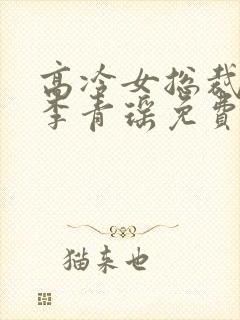 高冷女总裁
李青瑶免費
猫来也